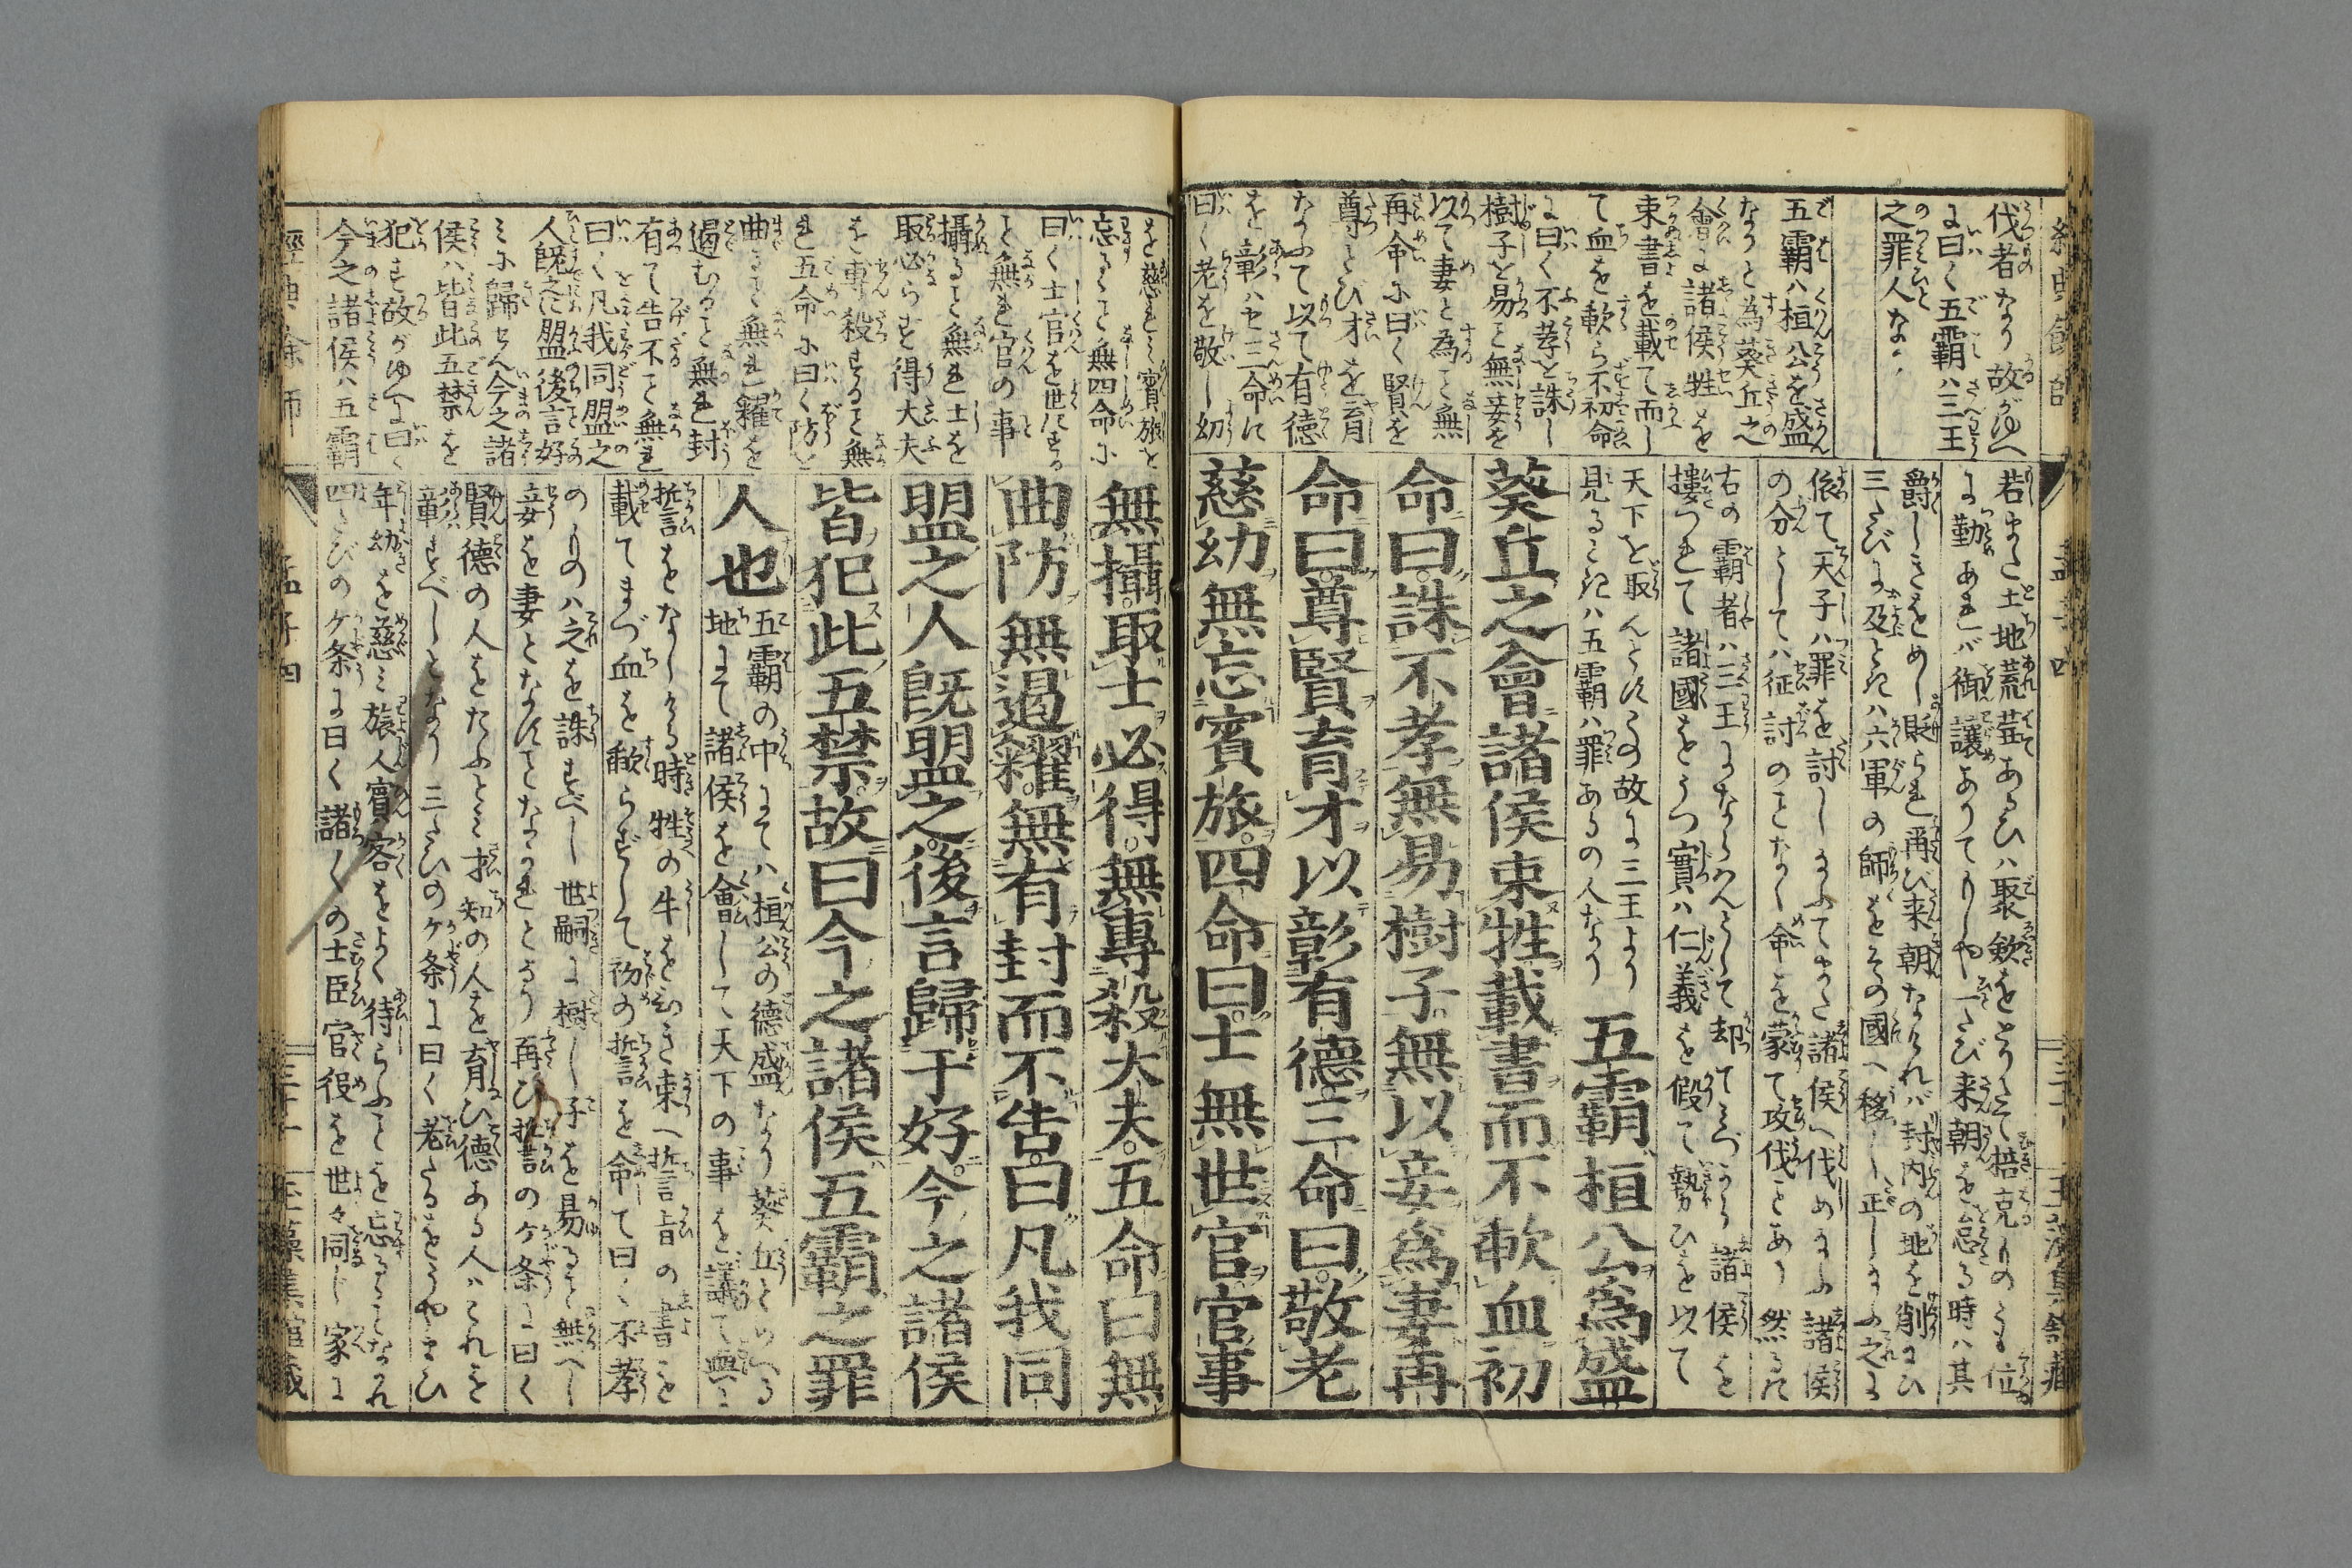 伐者なり故がゆへ
に曰く五霸ハ三王
之罪人なり
五霸ハ桓公を盛
なりと為葵丘之
會に諸侯牲を
束書を載て而し
て血を歃ら不初命
に曰く不孝を誅し
樹子を易こと無妾を
以て妻と為こと無
再命に曰く賢を
尊とび才を育
なふて以て有徳
を彰ハせ三命に
曰く老を敬し幼
若また土地荒蕪あるひハ聚斂をとりたて掊克ものくら位
に勤あれバ御讓ありてもしや一たび来朝を怠る時ハ其
爵しきをめし貶られ再び来朝なけれバ封内の地を削ニひ
三たびに及ときハ六軍の師をその國へ移し正しまふ之に
依て天子ハ罪を討しまふてまた諸侯へ伐めまふ諸侯
の分としてハ征討のことなく命を蒙て攻伐とあり然るに
右の霸者ハ三王にならハんとして却てミづから諸侯を
摟つれて諸國をうつ實ハ仁義を假て勢ひを以て
天下を取んとにくの故に三王より
見るときハ五霸ハ罪あるの人なり
五霸桓公為盛
葵丘之會諸侯束牲載書而不歃血初
命曰誅不孝無易樹子無以妾為妻再
命曰尊賢育才以彰有德三命曰敬老
慈幼無忘賓旅四命曰士無世官官事
孟子四
を慈ミ賓旅を
忘ること無四命に
曰く士官を世にする
こと無れ官の事
攝ること無れ士を
取必らず得大夫
を專殺すること無
れ五命に曰く防を
曲ること無れ糴を
遏むること無れ封
有て告不こと無れ
曰く凡我同盟之
人既之に盟後言好
ミに歸せん今之諸
侯ハ皆此五禁を
犯す故がゆへに曰く
今之諸侯ハ五霸
無攝取士必得無專殺大夫五命曰無
曲防無遏糴無有封而不告曰凡我同
盟之人既盟之後言歸于好今之諸侯
皆犯此五禁故曰今之諸侯五霸之罪
人也
五霸の中にてハ桓公の德盛なり葵丘といへる
地にて諸侯を會して天下の事を議て與に
誓をなしける時牲の牛を引き束へ誓旨の書を
載てまづ血を歃らずして初の誓を命て曰く不孝
のものハ之を誅すべし世嗣に樹し子を易ること無へし
妾を妻となすことなかれとなり再び誓のケ条に曰く
賢德の人をたふとミ才知の人を育ひ德ある人ハこれを
彰すべしとなり三たひのケ条に曰く老たるをうやまひ
年幼を慈ミ旅人賓客をよく待らふことを忘ることなかれ
四たびのケ条に曰く諸〱の士臣官役を世々同じ家に
經典餘師
孟子四
三十一
玉藻集舘藏